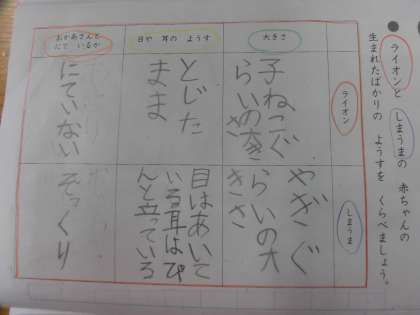 ライオンと しまうまの 赤ちゃんの
生まれたばかりの ようすを くらべましょう。
ライオン
しまうま
大きさ
子ねこぐ
らいの大き
さ
やぎぐ
らいの大
きさ
目や 耳の ようす
とじた
まま
目はあいて
いる耳はぴ
んと立っている
おかあさんと
にて いるか
にていない
そっくり